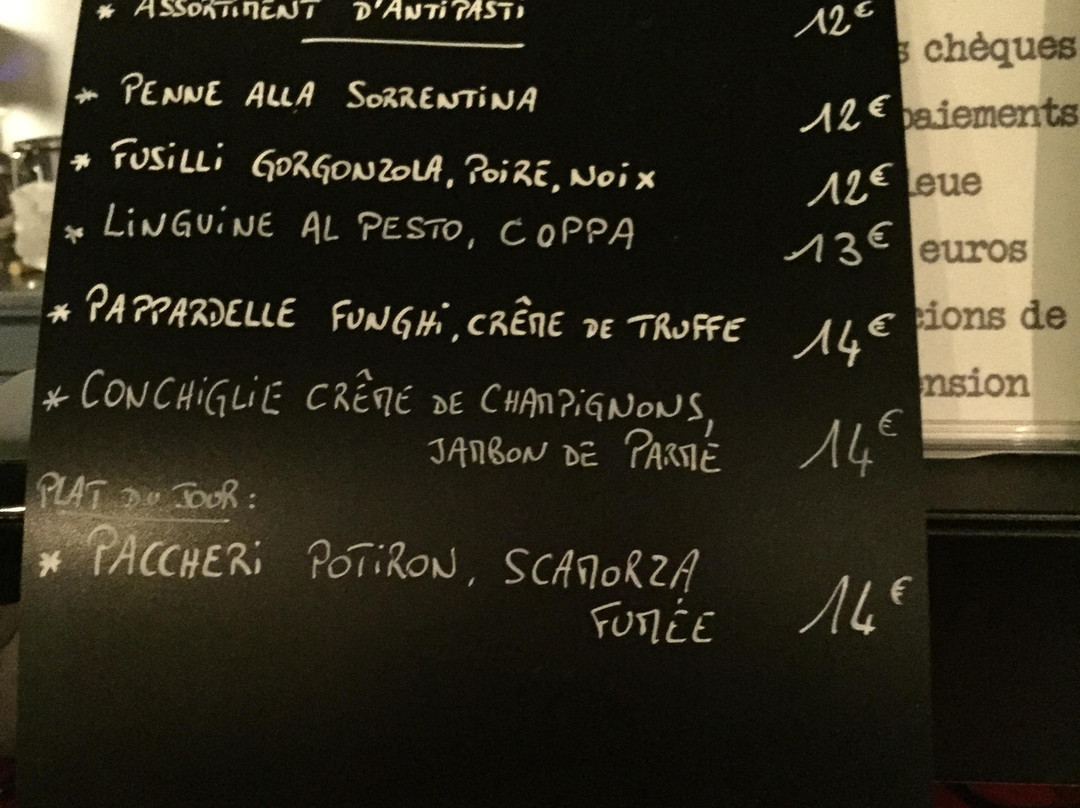 * ASSORTIMENT D'ANTIPASTI 12€
* PENNE ALLA SORRENTINA 12€
* FUSILLI GORGONZOLA, POIRE, NOIX 12€
* LINGUINE AL PESTO, COPPA 13€
* PAPPARDELLE FUNGHI, CRÊME DE TRUFFE 14€
* CONCHIGLIE CRÊME DE CHAMPIGNONS,
JAMBON DE PARME 14€
PLAT DU JOUR:
* PACCHERI POTIRON, SCAMORZA
FUMÉE 14€
chèques
paiements
euros
de